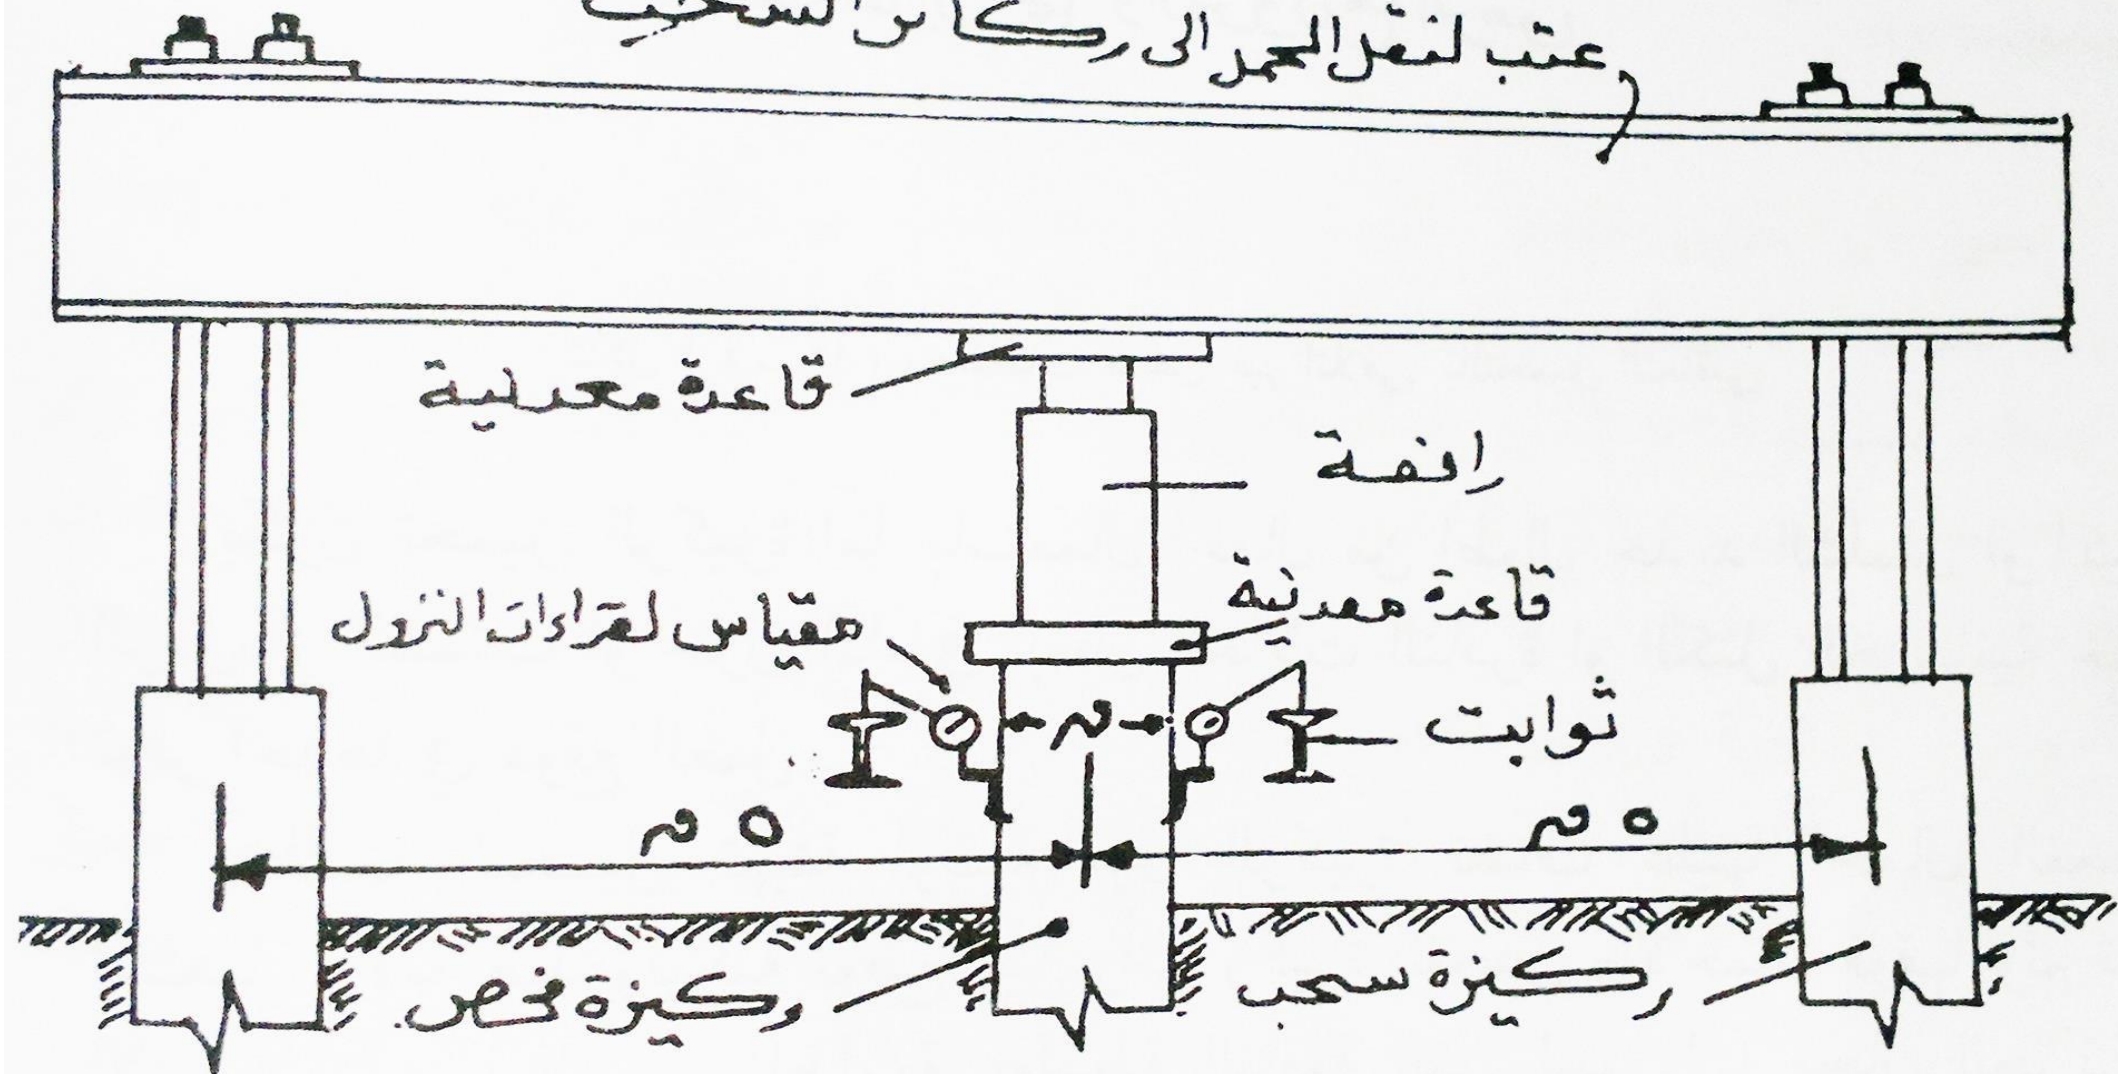 عتب لنقل الحمل الى ركائز السحب
قاعدة معدنية
رافعة
قاعدة معدنية
مقياس لقراءات النزول
ثوابت
ق
٥ ق
٥ ق
ركيزة فحص
ركيزة سحب